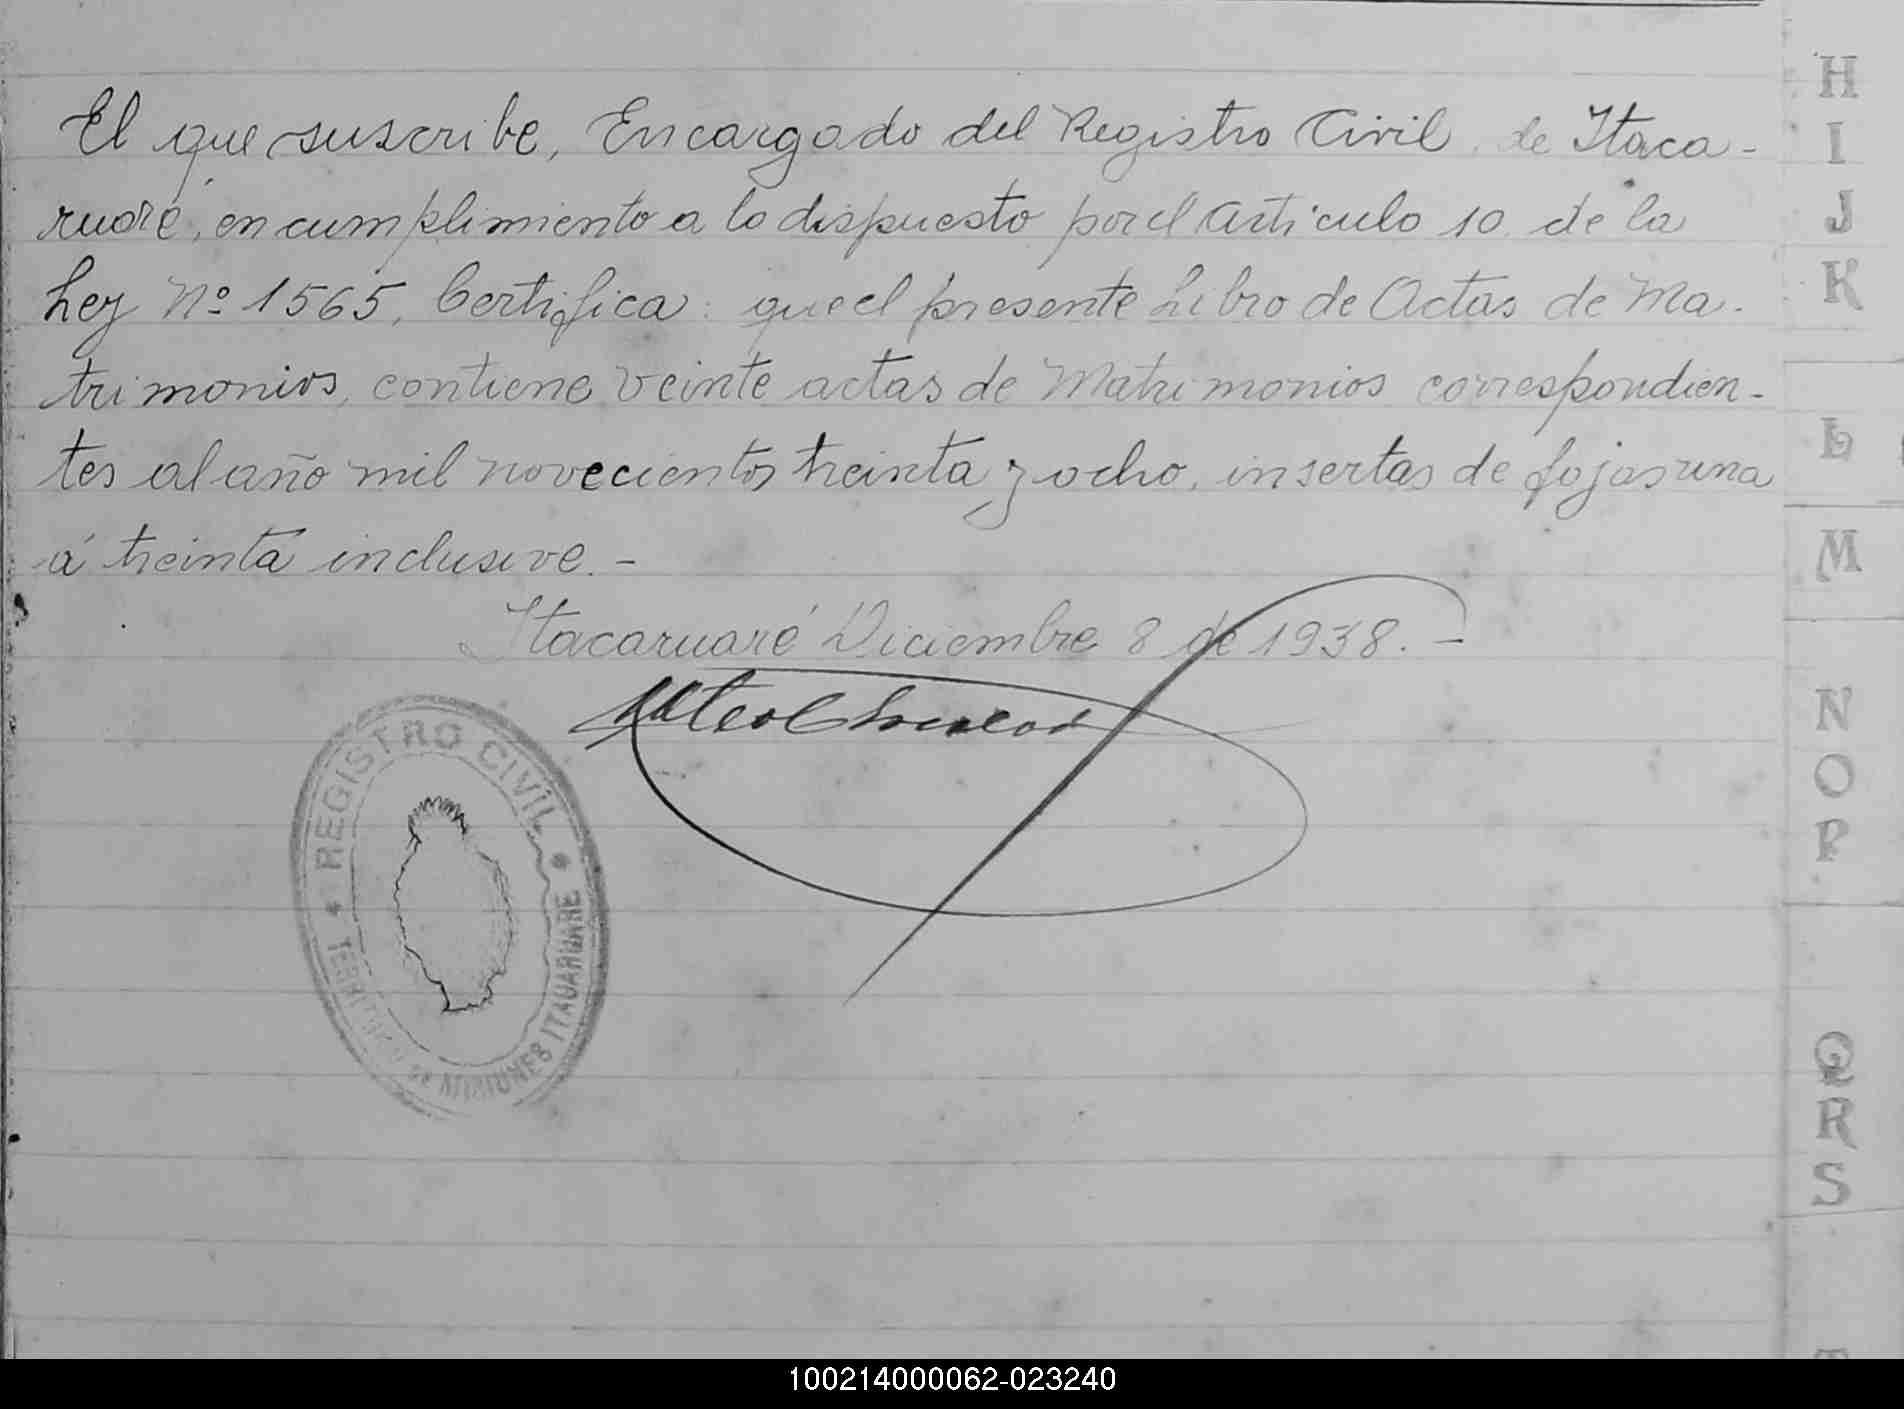 El que suscribe, Encargado del Registro Civil, de Itaca-
ruaré, en cumplimiento a lo dispuesto por el Artículo 10 de la
Ley Nº 1565, Certifica: que el presente Libro de Actas de Ma-
trimonios, contiene veinte actas de Matrimonios correspondien-
tes al año mil novecientos treinta y ocho, insertas de fojas una
á treinta inclusive.-
Itacaruaré Diciembre 8 de 1938.-
REGISTRO CIVIL
TERRITORIO DE MISIONES ITACARUARE
H
I
J
K
L
M
N
O
P
Q
R
S
100214000062-023240